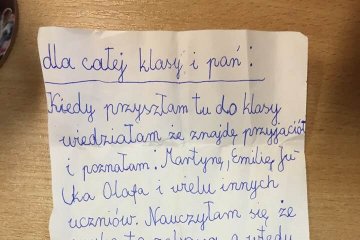 dla całej klasy i pań:
Kiedy przyszłam tu do klasy
wiedziałam że znajdę przyjaciół
i poznałam: Martynę, Emilię, Ju
lka Olafa i wielu innych
uczniów. Nauczyłam się że
to zabawa a wtedy